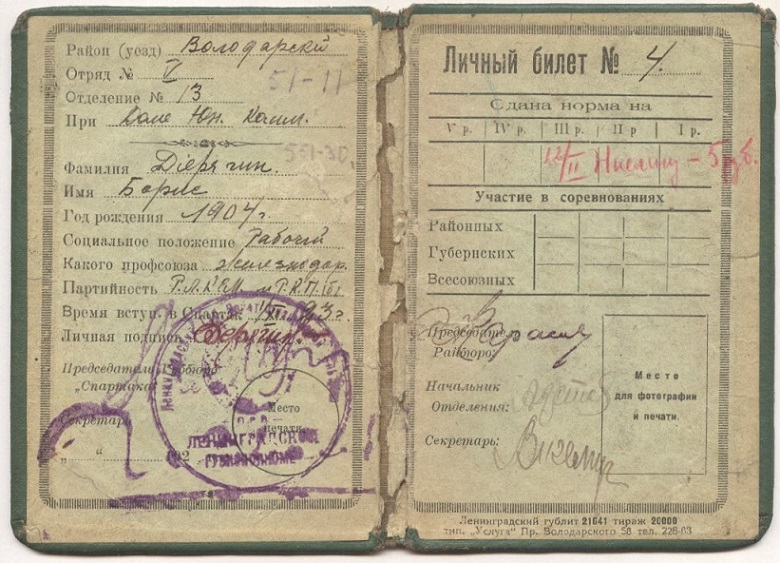 Район (уезд) Володарский
Отряд № V
51-11
Отделение № 13
При Коле Юн. Комм.
551-30.
Фамилия Дерягин.
Имя Борис
Год рождения 1907 г.
Социальное положение Рабочий
Какого профсоюза железнодор.
Партийность Р.Л.К.С.М.
Время вступ. в Спартак
Личная подпись Дерягин
Председатель Губбюро
„Спартака"
Секретарь
Место
печати.
„ " 192
ЛЕНИНГРАДСКОМ
ГУБИСПОЛКОМЕ
Личный билет № 4.
Сдана норма на
V р. IV р. III р. II р. I р.
5 руб.
Участие в соревнованиях
Районных
Губернских
Всесоюзных
Председатель
Райбюро:
Начальник
Отделения:
Секретарь:
Место
для фотографии
и печати.
Ленинградский гублит 21641 тираж 20000
тип. „Услуга" Пр. Володарского 58 тел. 228-03